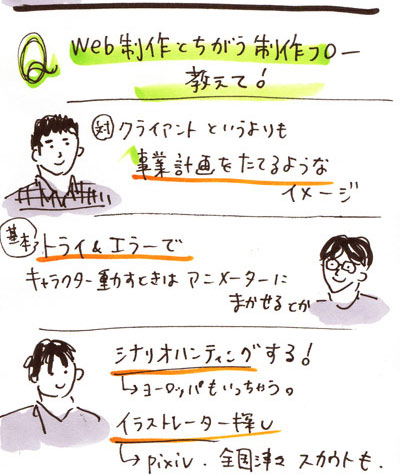 Q Web制作とちがう制作フロー
教えて!
対 クライアントというよりも
事業計画をたてるような
イメージ
基本 トライ&エラーで
キャラクター動すときはアニメーターに
まかせるとか
シナリオハンティングする!
↳ヨーロッパもいっちゃう。
イラストレーター探し
↳pixiv. 全国津々 スカウトも.